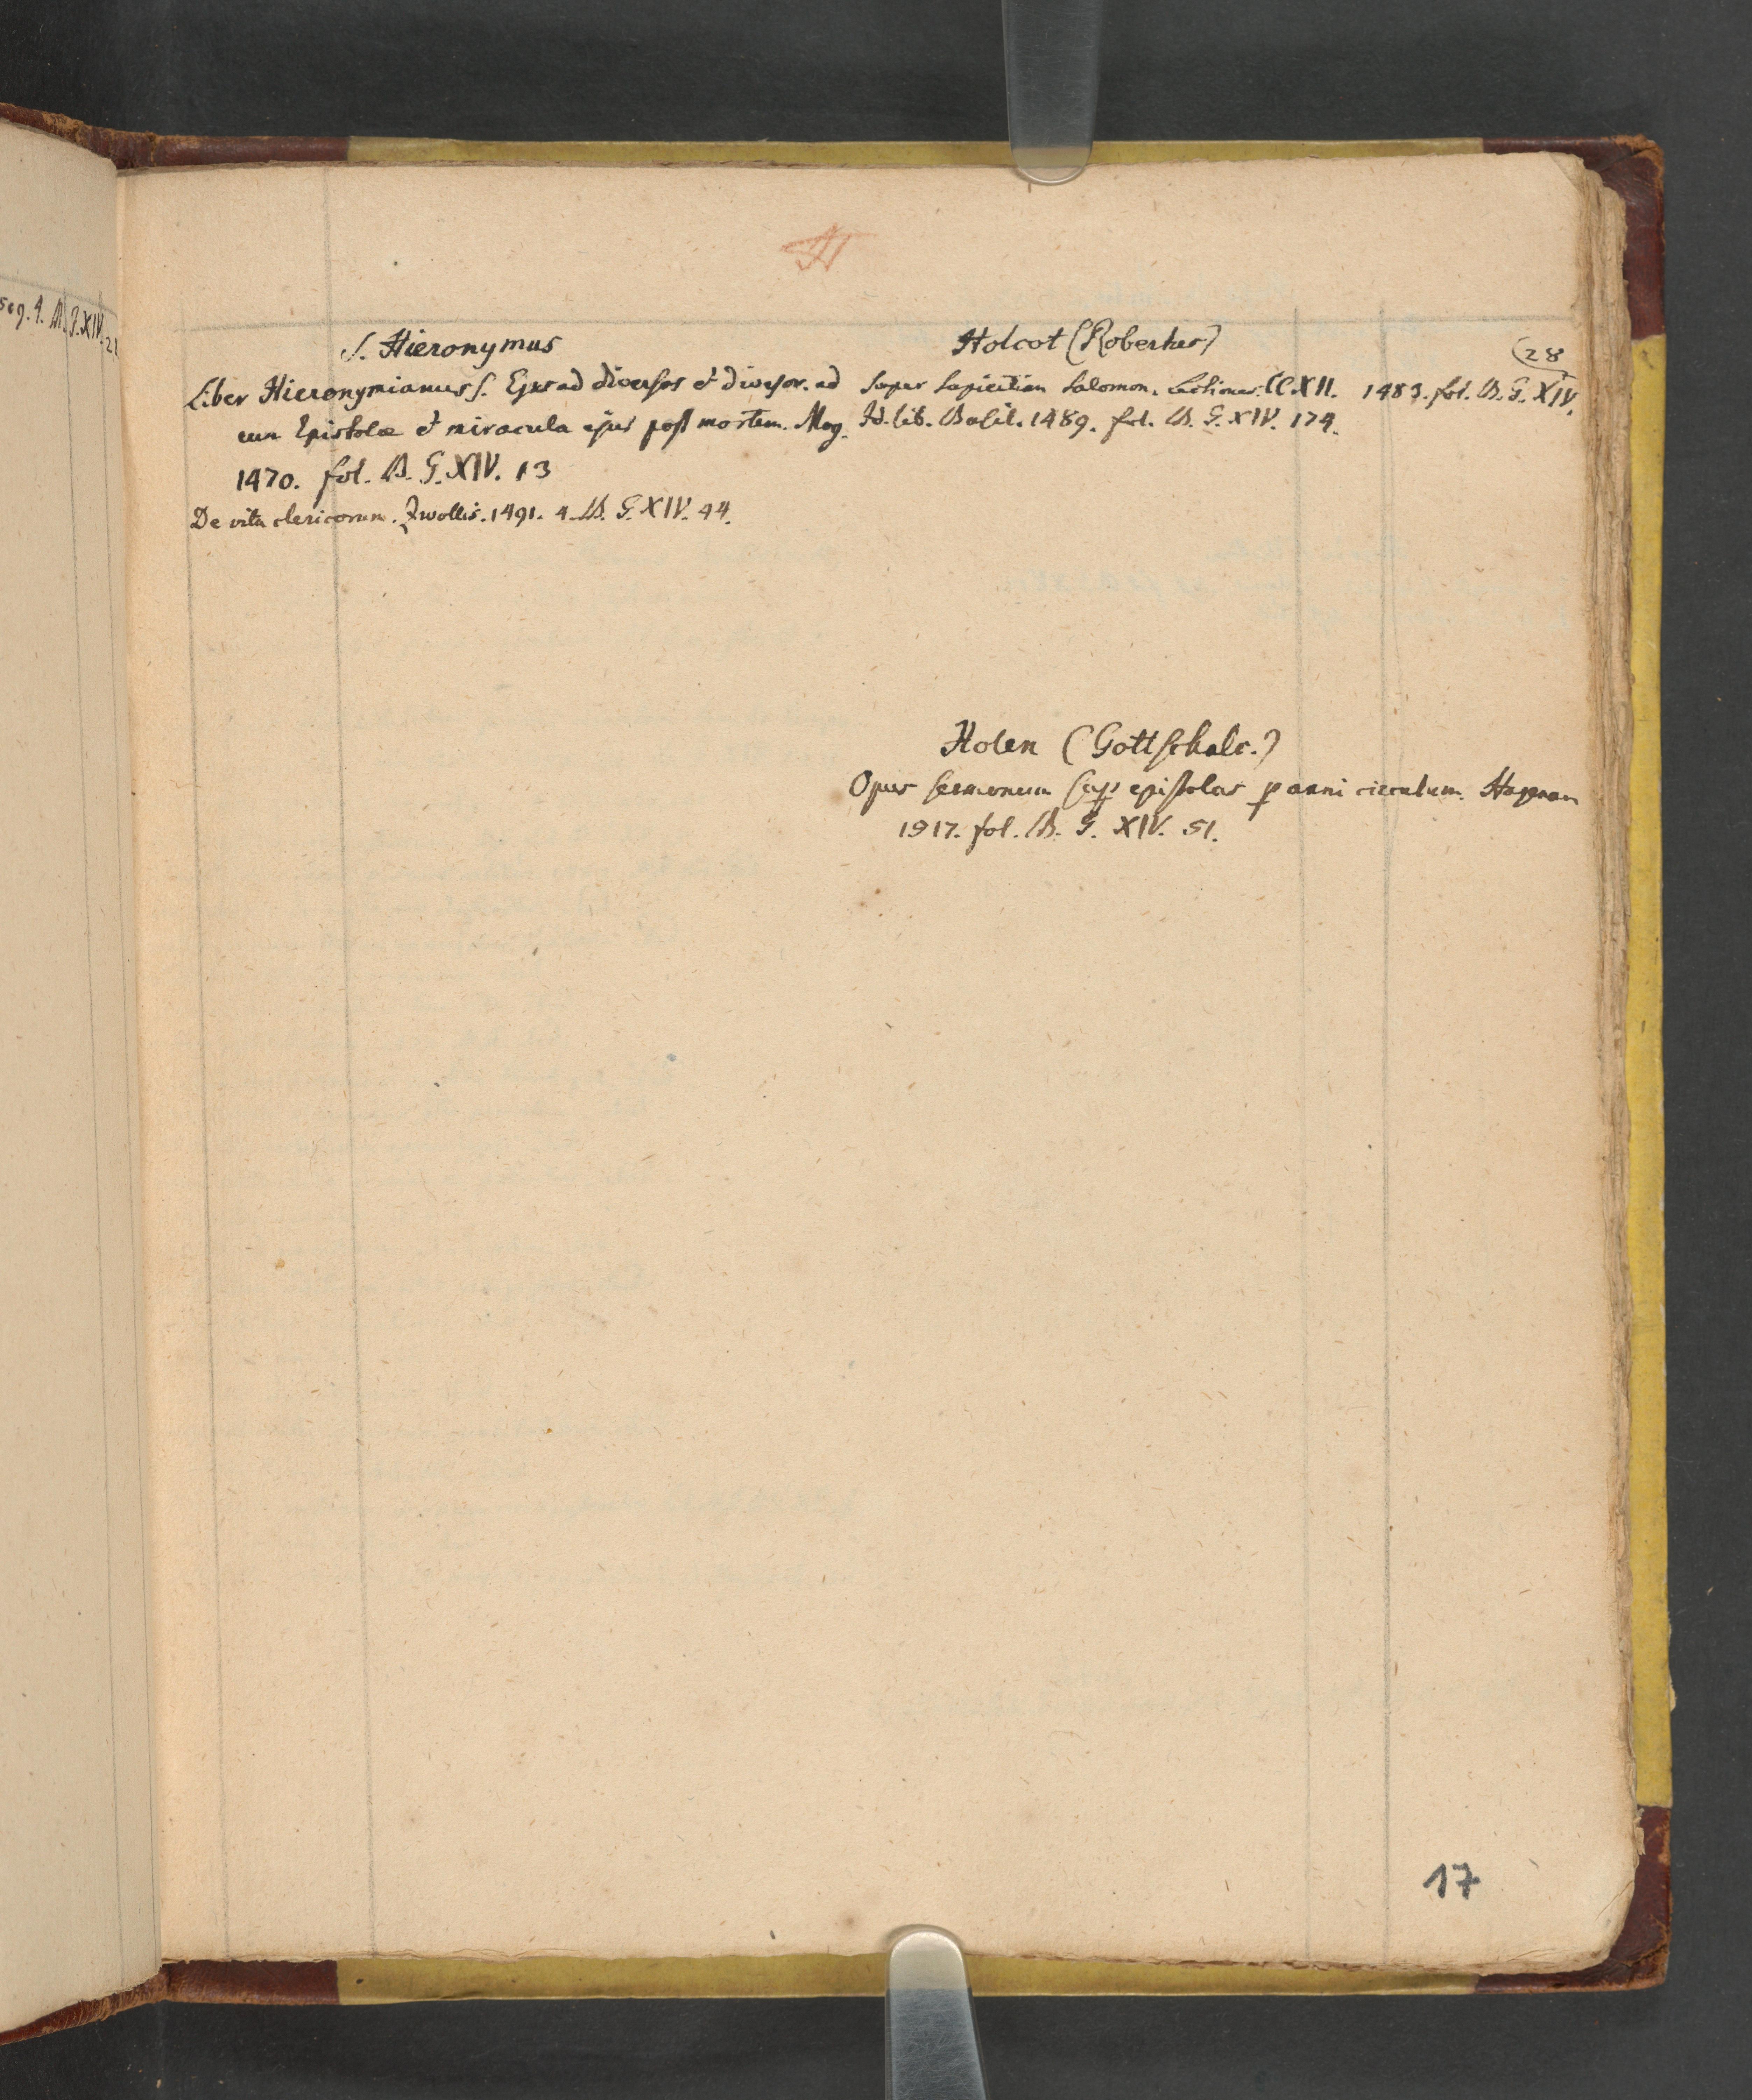 H
S. Hieronymus
Liber Hieronymianus s. Ejus ad diversos et diversor. ad
eum Epistolæ et miracula ejus post mortem. Mog.
1470. fol. B. G. XIV. 13
De vita clericorum. Zwollis. 1491. 4. B. G. XIV. 44.
Holcot (Robertus)
Super Sapientiam Salomon. Lectiones CCXII. 1483. fol. B. G. XIV.
28
Id. lib. Basil. 1489. fol. B. G. XIV. 174.
Holen (Gottschalc.)
Opus sermonum sup epistolas p anni circulum. Hagenau
1517. fol. B. G. XIV. 51.
17